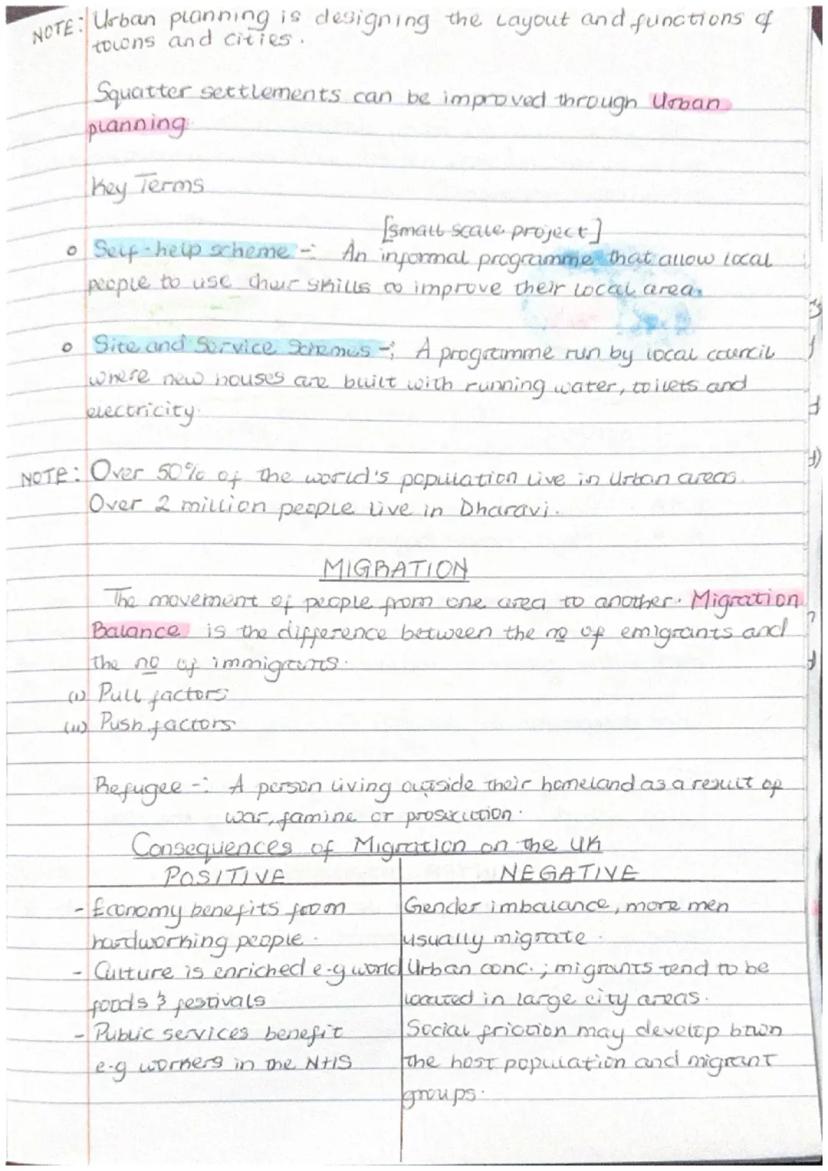 NOTE: Urban planning is designing the layout and functions of
towns and cities.
Squatter settlements can be improved through Urban
planning.
Key Terms
[small scale project]
Self-help scheme -: An informal programme that allow local
people to use their skills to improve their local area.
Site and Service Schemes -: A programme run by local council
where new houses are built with running water, toilets and
electricity.
NOTE: Over 50% of the world's population live in Urban areas.
Over 2 million people live in Dharavi.
MIGRATION
The movement of people from one area to another. Migration
Balance is the difference between the no of emigrants and
the no of immigrants.
(i) Pull factors
(ii) Push factors
Refugee -: A person living outside their homeland as a result of
war, famine or prosecution.
Consequences of Migration on the UK
POSITIVE NEGATIVE
- Economy benefits from Gender imbalance, more men
hardworking people. usually migrate.
- Culture is enriched e.g world Urban conc.; migrants tend to be
foods & festivals located in large city areas.
- Public services benefit Social friction may develop btwn
e.g workers in the NHS the host population and migrant
groups.